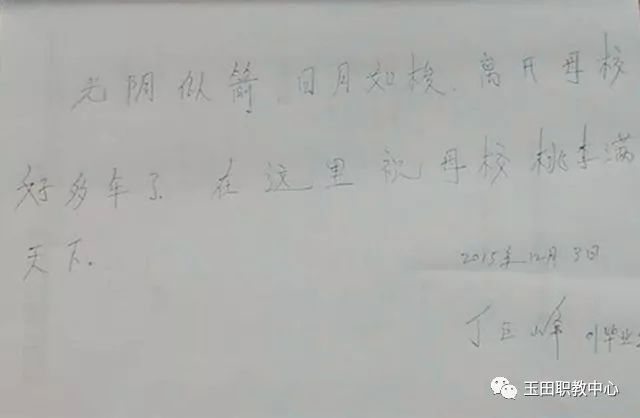 光阴似箭.日月如梭.离开母校
好多年了 在这里祝母校桃李满
天下.
2015年12月3日
丁巨峰 91毕业
玉田职教中心